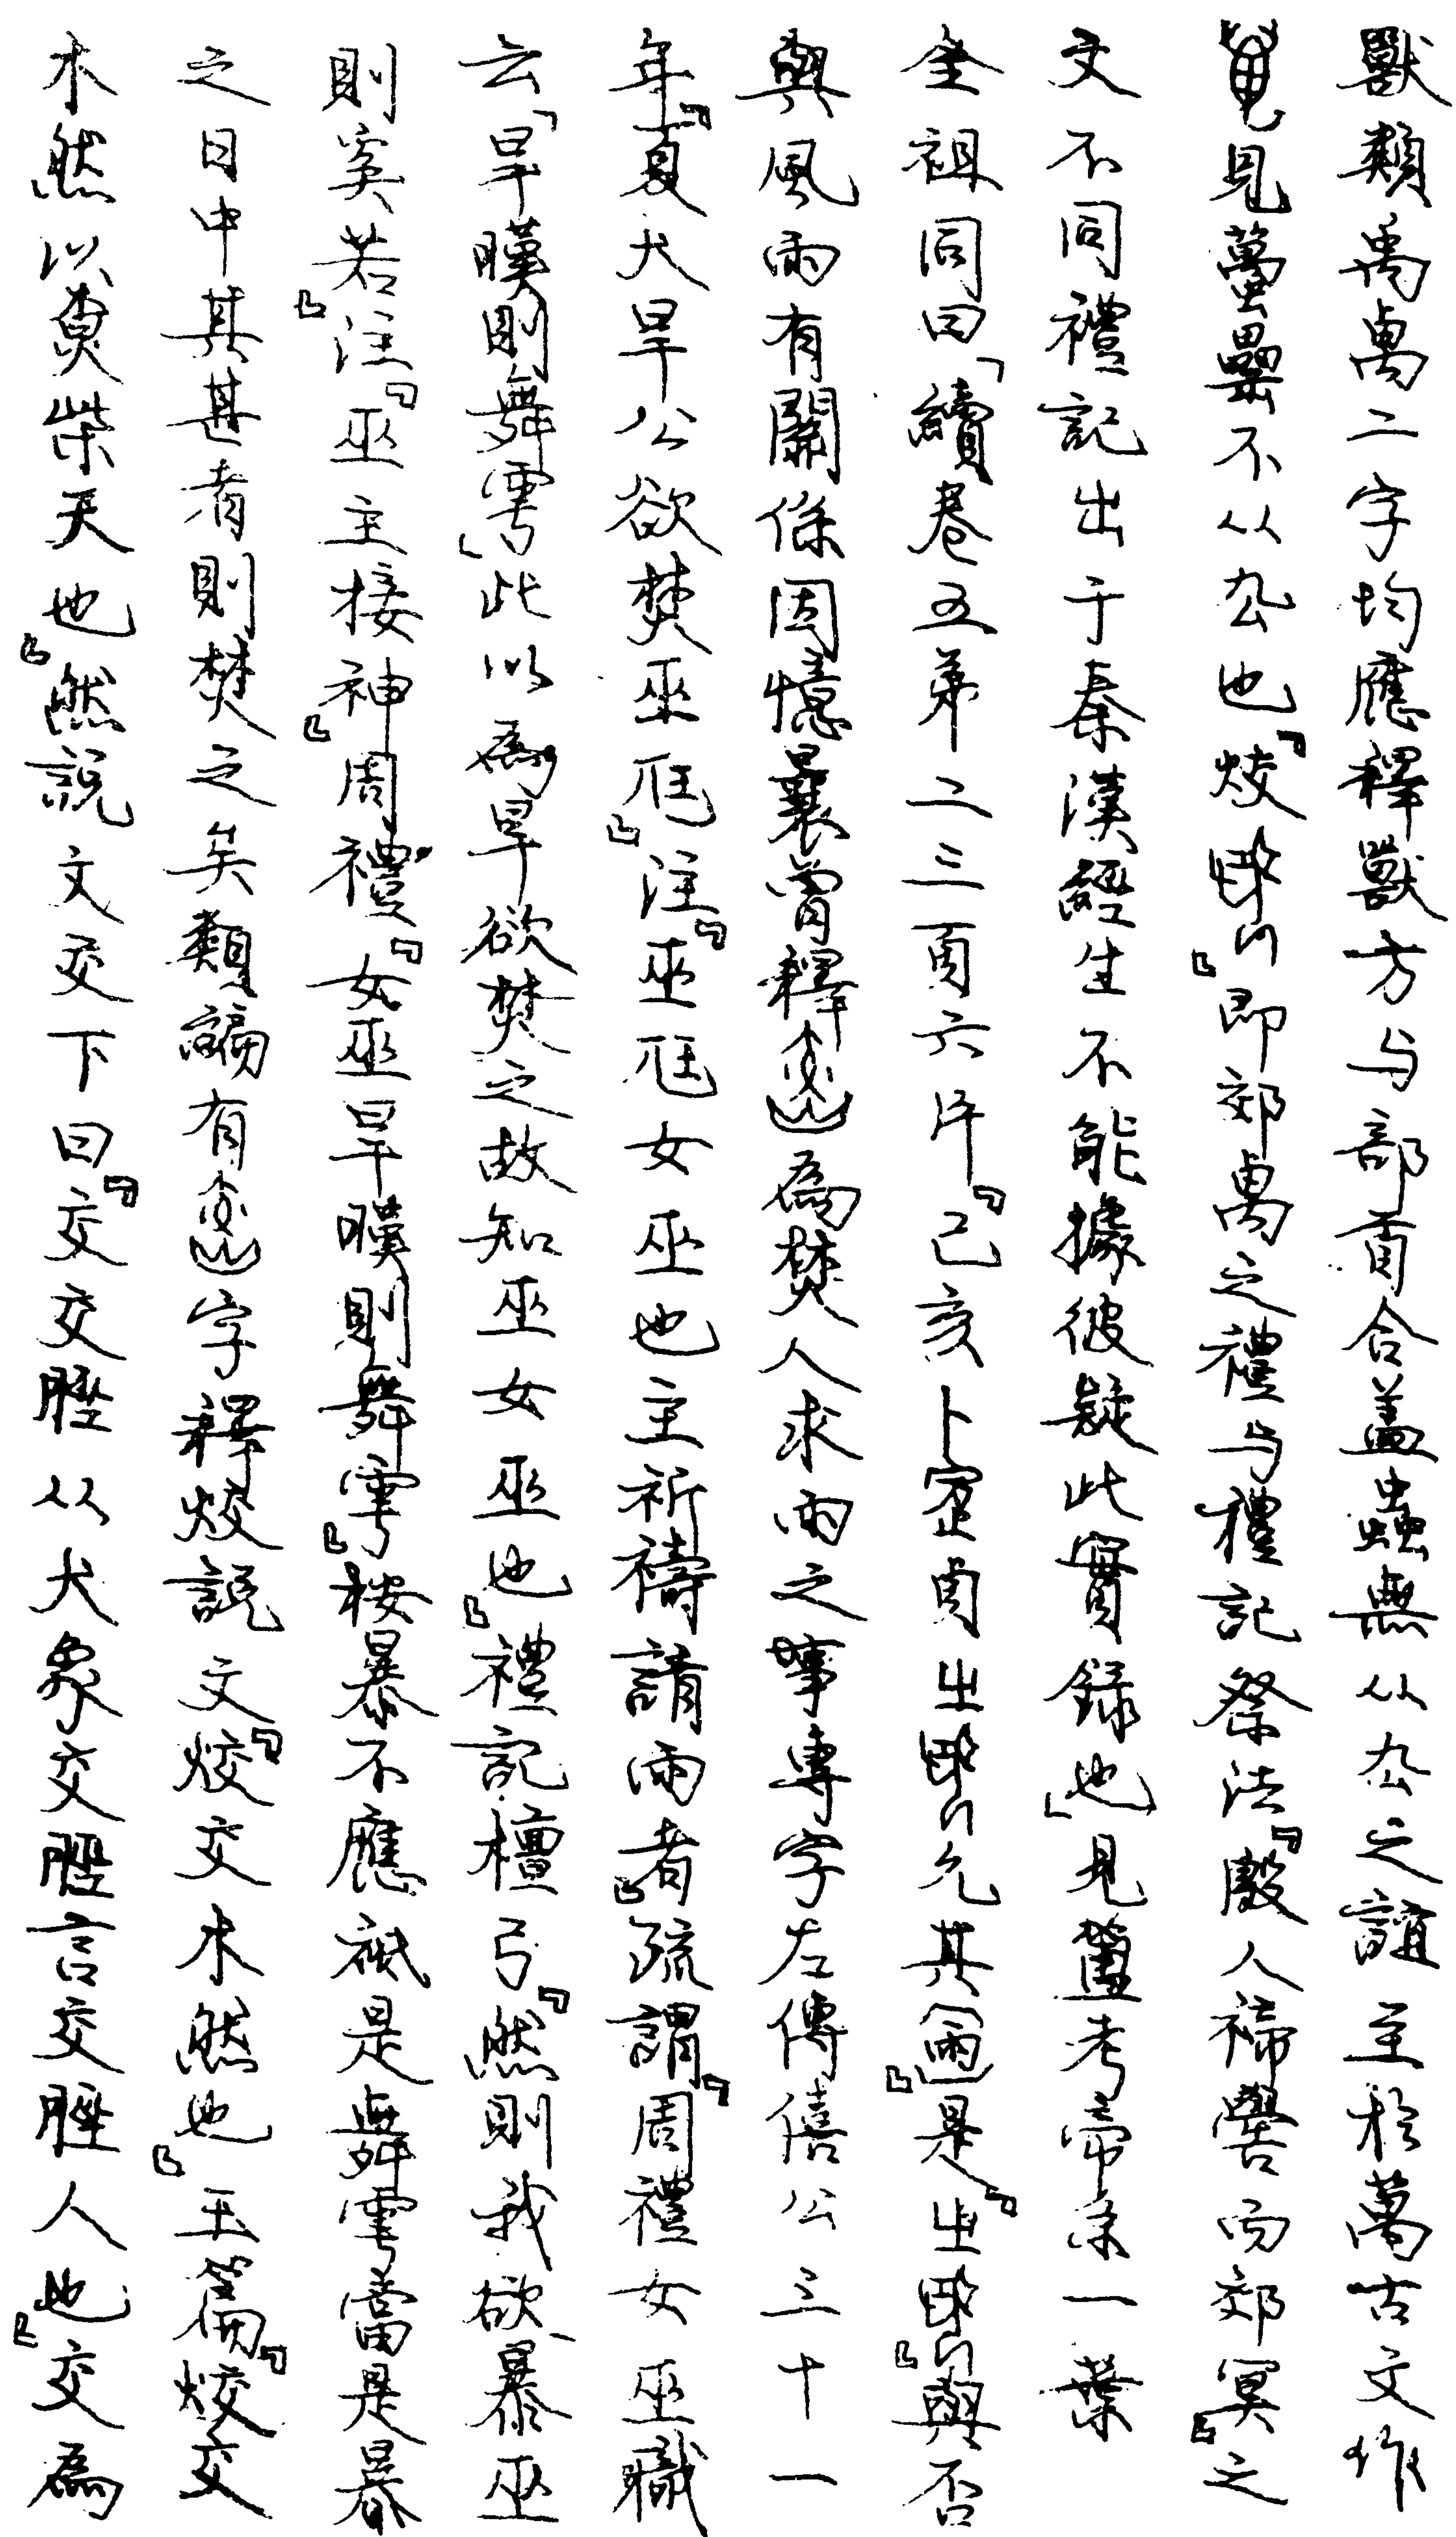 獸類禹萬二字均應釋獸方与部首合蓋蟲無从厹之誼至於萬古文作
見蠆䍣不从厹也『烄』即郊禼之禮与禮記祭法『殷人禘嚳而郊冥』之
文不同禮記出于秦漢經生不能據彼疑此實錄也」見簠考帝系一葉
全祖同曰「續卷五第二三頁六片『己亥卜㱿貞㞢允其』是『㞢』與否
與風雨有關係因憶曩嘗釋為焚人求雨之事專字左傳僖公三十一
年『夏大旱公欲焚巫尫』注『巫尫女巫也主祈禱請雨者』疏謂『周禮女巫職
云「旱暵則舞雩」此以為旱欲焚之故知巫女巫也』禮記檀弓『然則我欲暴巫
則奚若』注『巫主接神』周禮『女巫旱暵則舞雩』按暴不應祇是舞雩當是暴
之日中其甚者則焚之矣類謆有字釋烄說文『烄交木然也』玉篇『烄交
木然以尞柴天也』然說文交下曰『交交脛从大象交脛言交脛人也』交為